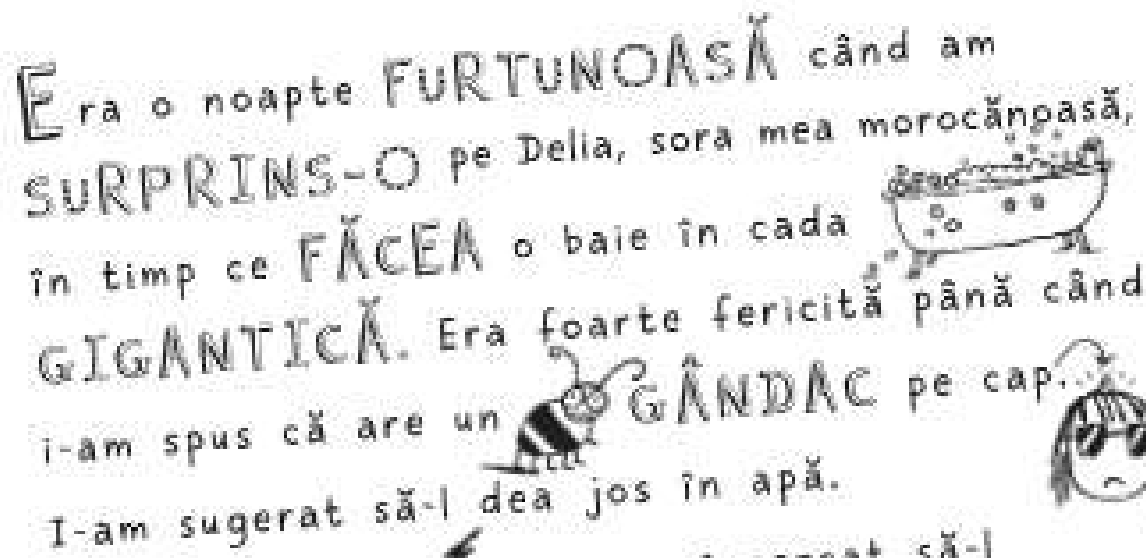 Era o noapte FURTUNOASĂ când am
SURPRINS-O pe Delia, sora mea morocănoasă,
în timp ce FĂCEA o baie în cada
GIGANTICĂ. Era foarte fericită până când
i-am spus că are un GÂNDAC pe cap.
I-am sugerat să-l dea jos în apă.
să-l